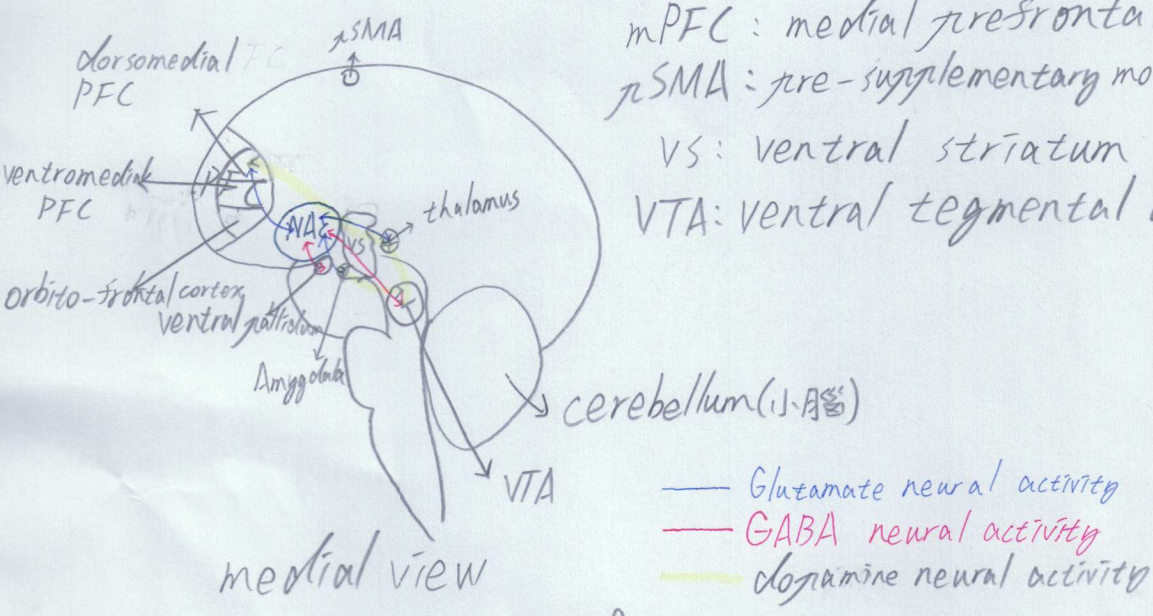 pSMA
dorsomedial
PFC
ventromedial
PFC
orbito-frontal cortex
ventral pallidum
Amygdala
NAc
VS
thalamus
VTA
cerebellum(小腦)
medial view
mPFC : medial prefronta
pSMA : pre-supplementary mo
VS : ventral striatum
VTA: ventral tegmental
Glutamate neural activity
GABA neural activity
dopamine neural activity